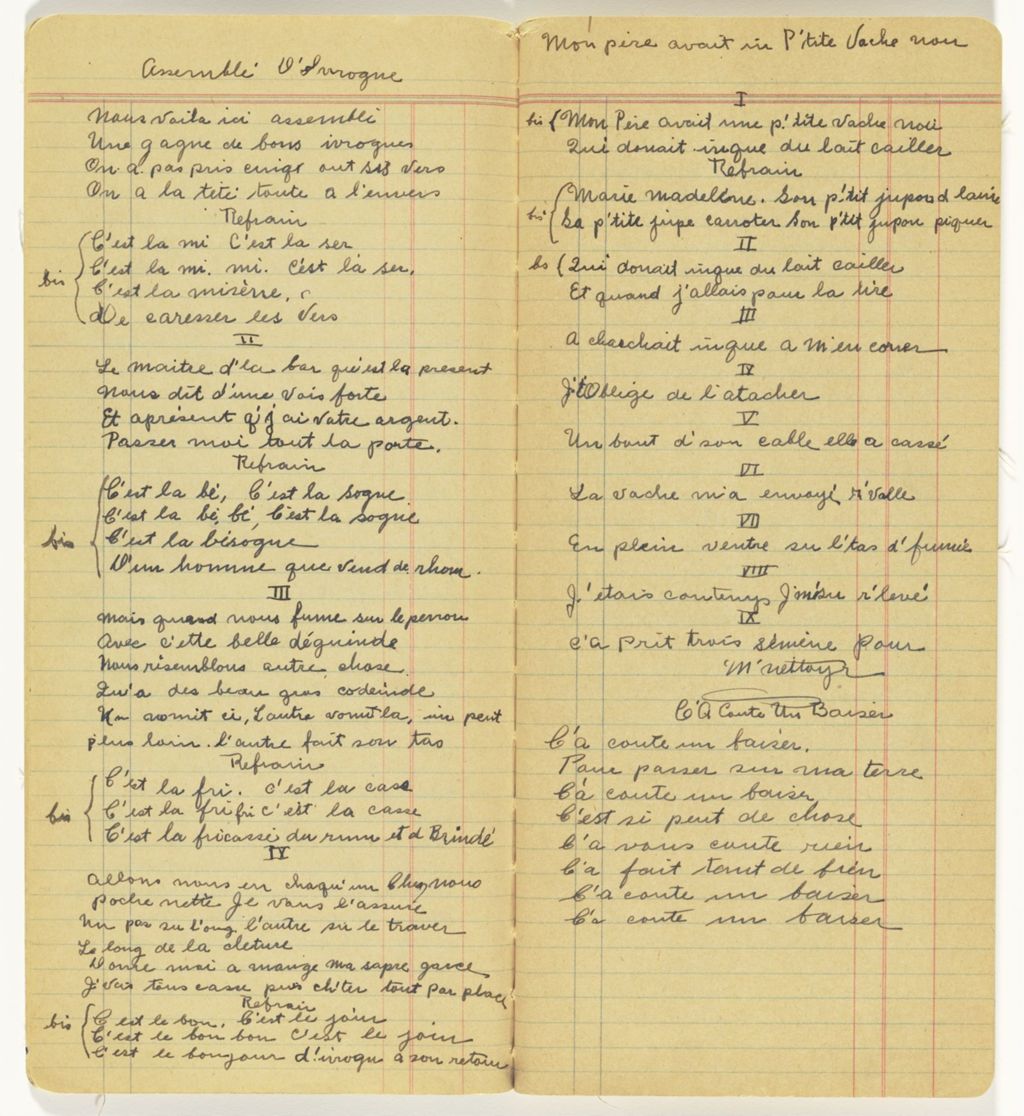 Assemblé D'Ivrogne
Nous voila ici assemblé
Une gagne de bons ivrognes
On a pas pris cinq out six vers
On a la tete toute a l'envers
Refrain
bis
C'est la mi C'est la ser
C'est la mi. mi. C'est la ser.
C'est la misèrre,
De caresser les Vers
II
Le maitre d'la bar qu'est la present
Nous dit d'une vois forte
Et apresent q'j'ai votre argent.
Passer moi tout la porte.
Refrain
bis
C'est la bé, C'est la sogne
C'est la bé, bé, C'est la sogne
C'est la bésogne
D'un homme que vend de rhom.
III
Mais quand nous fume sur le perron
Avec c'ette belle déguinde
Nous risemblons autre chose
Qu'a des beau gros codeinde
Un vomit ci, L'autre vomit la, un peut
plus loin. l'autre fait son tas
Refrain
bis
C'est la fri. c'est la case
C'est la fri fri c'est la casse
C'est la fricassé du rum et d Brindé
IV
Allons nous en chaqu'un Cheznous
poche nette Je vous l'assure
Un pas su l'ong l'autre su le traver
Le long de la cleture
Donne moi a mange ma sapre garce
J'vais tous casse pis ch'ter tout par place
Refrain
bis
C'est le bon, C'est le jour
C'est le bon bon C'est le jour
C'est le bonjour d'ivrogn a son retour
Mon père avait in P'tite Vache noir
I
bis (Mon Père avait une p'tite vache noir
Qui donait inque du lait cailler
Refrain
bis
(Marie madellène. Son p'tit jupon d laine
Sa p'tite jupe carroter Son p'tit jupon piquer
II
bs (Qui donait inque du lait cailler
Et quand j'allais pour la tire
III
A charchait inque a m'encorner
IV
J't'Oblige de l'atacher
V
Un bout d'son cable elle a cassé
VI
La vache m'a envoyé r'volle
VII
En plein ventre su l'tas d'fumié
VIII
J'étais contens J'm'su r'levé
IX
C'a prit trois sémène pour
M'nettoyr
C'A Coute Un Baiser
C'a coute un baiser.
Pour passer sur ma terre
C'a coute un baiser
C'est si peut de chose
C'a vous coute rien
C'a fait tant de bien
C'a coute un baiser
C'a coute un baiser